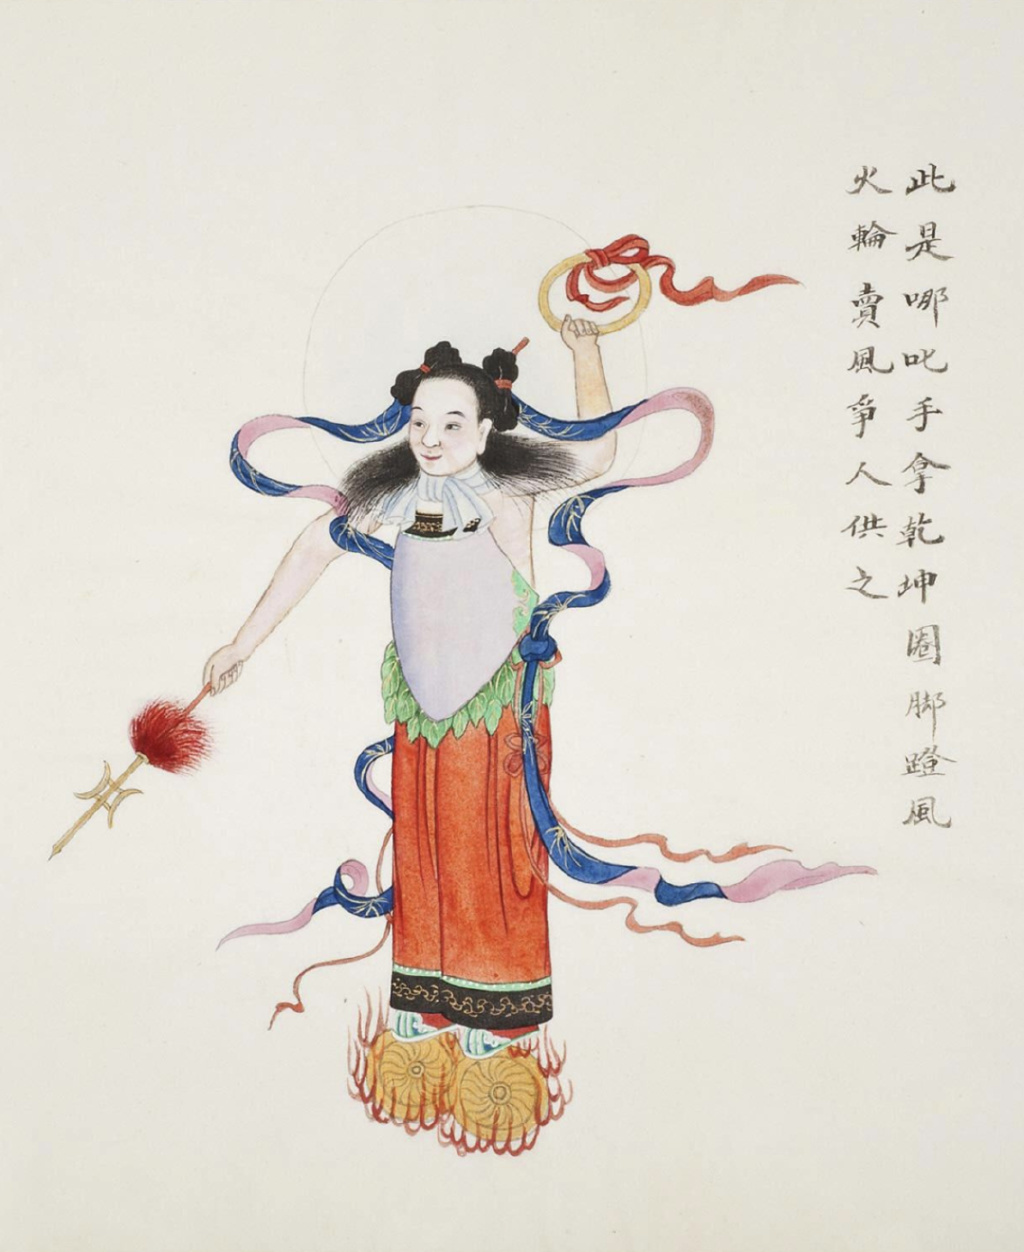 此是哪叱手拿乾坤圈脚蹬風
火輪賣風爭人供之